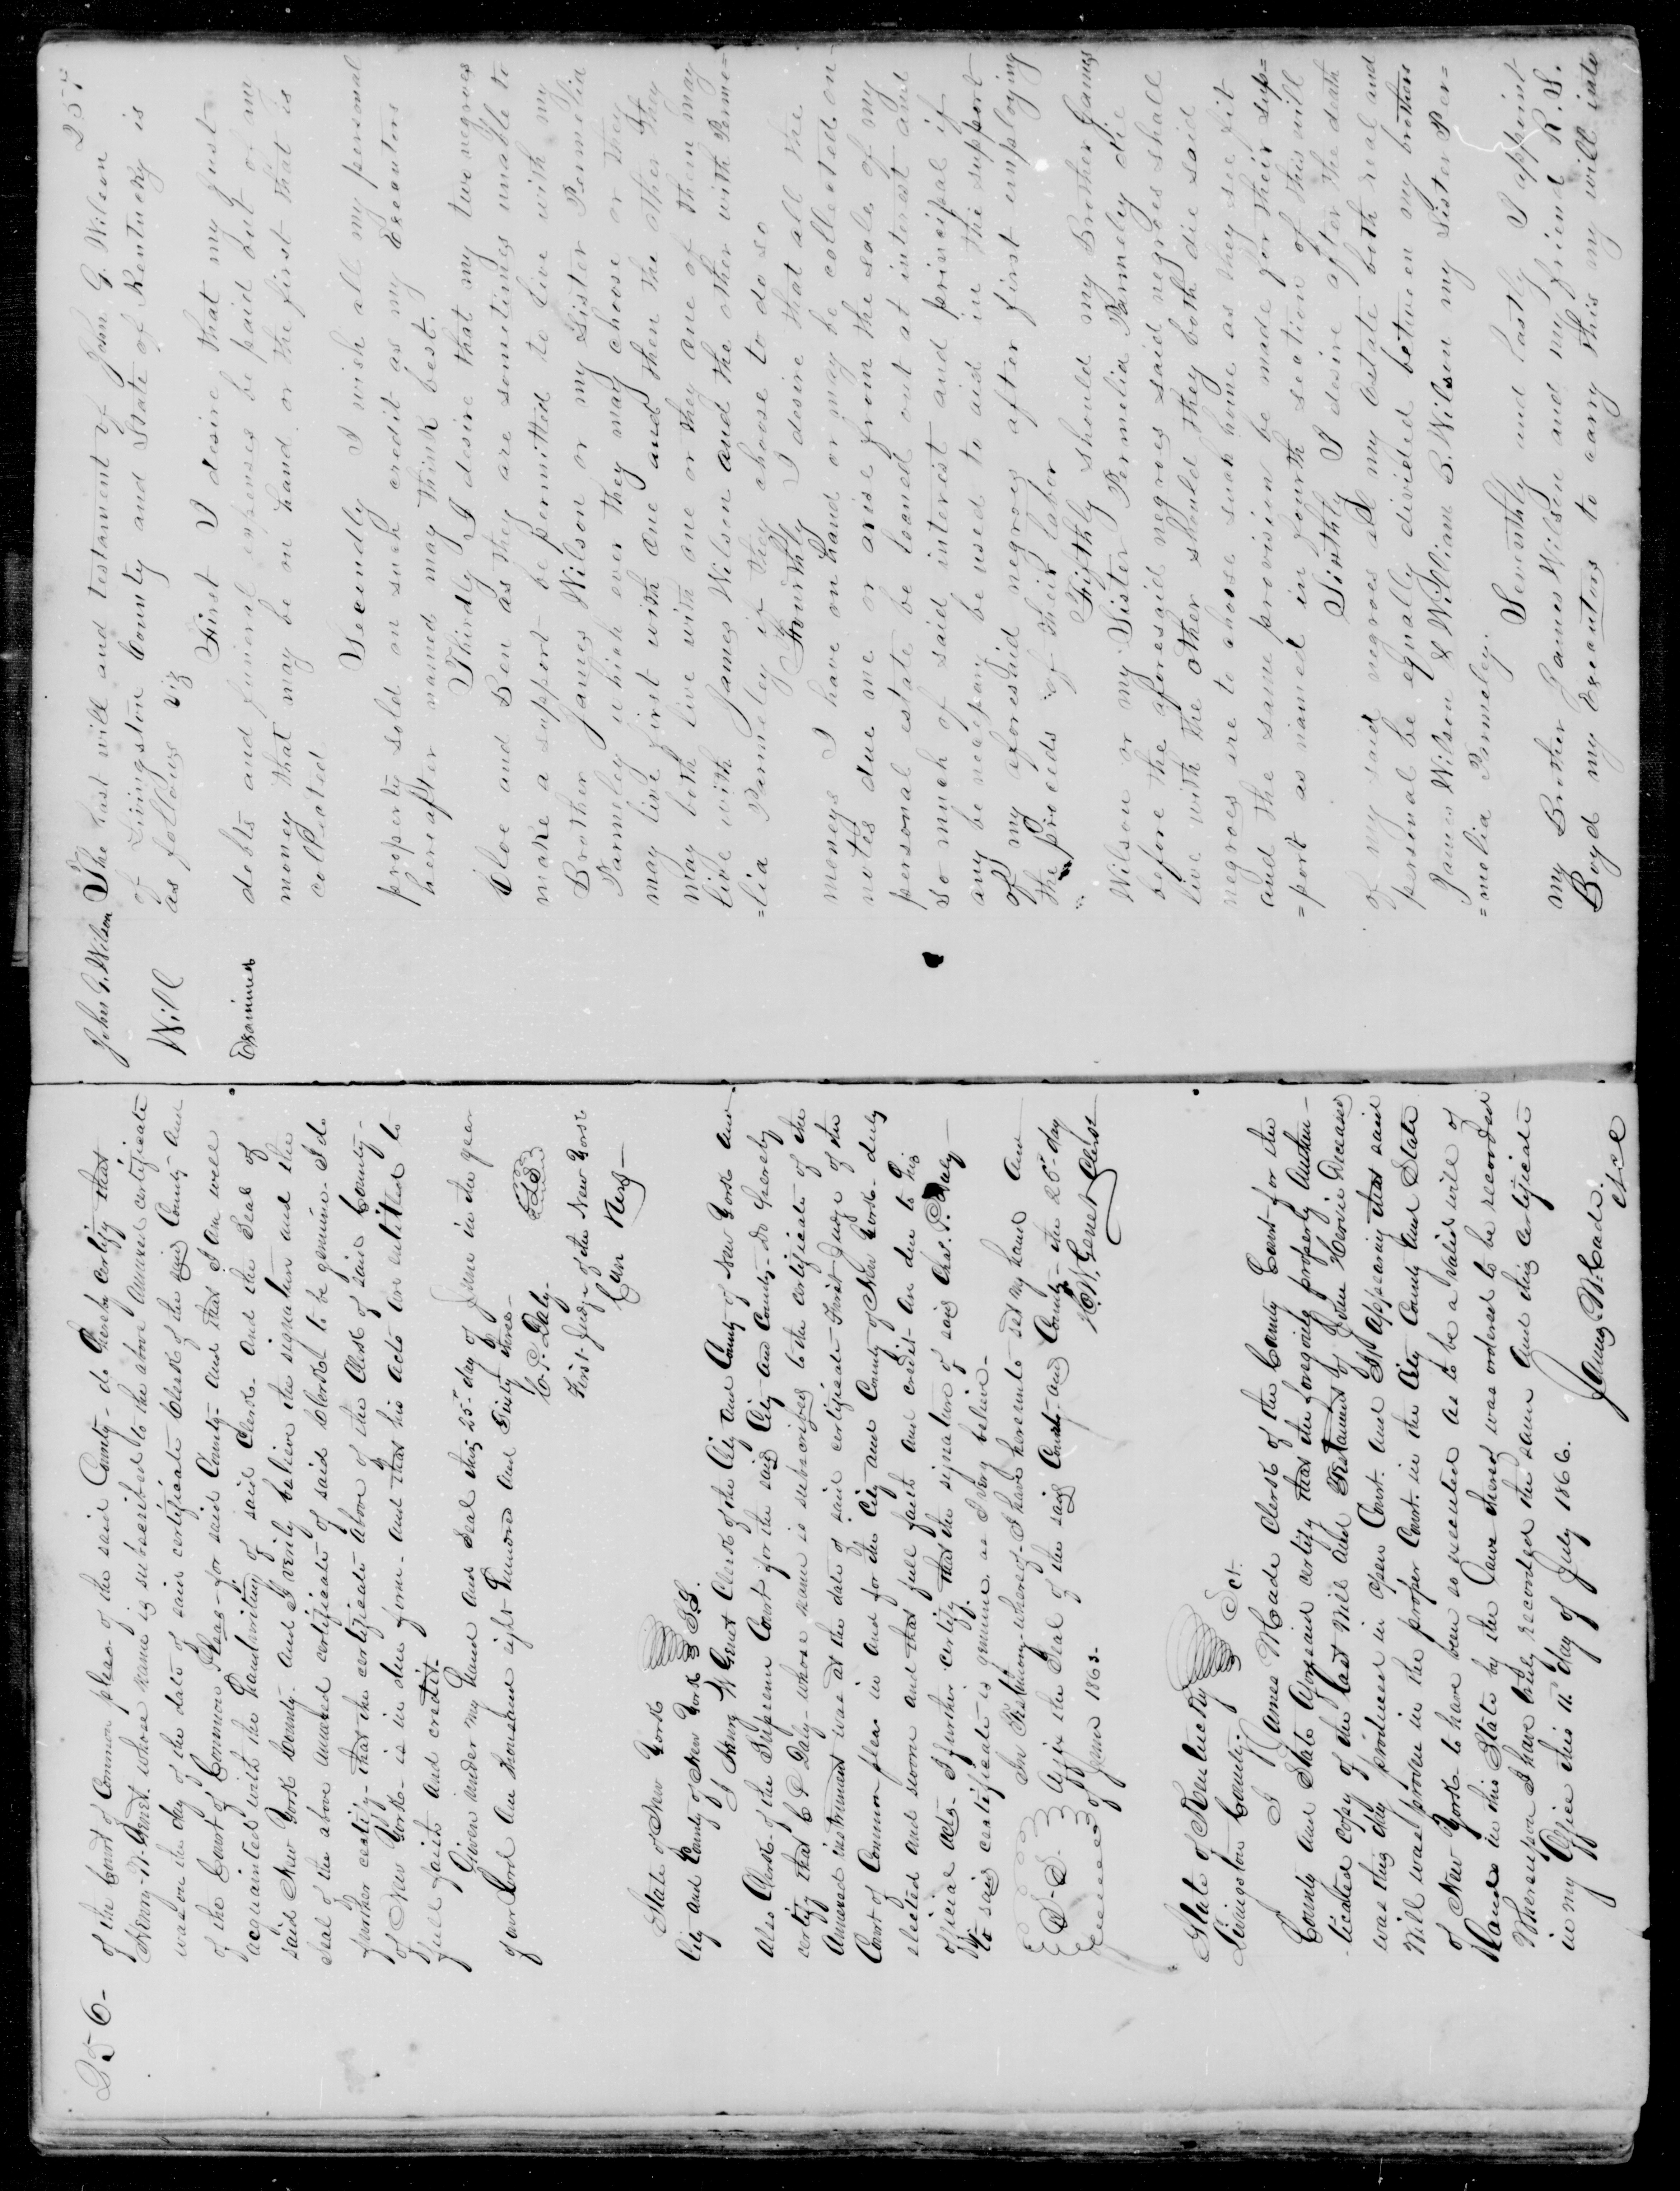 256-
of the Court of Common pleas of the said County- do hereby certify that
Henry W. Genet whose name is subscribed to the above annexed certificate
was on the day of the date of said certificate Clerk of the said County and
of the Court of Common Pleas- for said County- And that I am well
acquainted with the handwriting of said Clerk- And the Seal of
said New York County. And I verily believe the signature and the
seal of the above annexed certificate of said Clerk to be genuine- I do
further certify- that the certificate above of the Clerk of said County-
of New York- is in due form- And that his acts are entitled to
full faith and credit-
Given under my hand and seal this 25 day of June in the year
of our Lord one thousand eight hundred and Sixty three-
C. P. Daly- L.S.
First Judge of the New York
Com Pleas-
State of New York
City and County of New York S.S.
I Henry W Genet Clerk of the City and County of New York and
also Clerk of the Supreme Court for the said City and County- do hereby
certify that C P Daly- whose name is subscribed to the certificate of the
annexed instrument was at the date of said certificate First Judge of the
Court of Common pleas in and for the City and County of New York- duly
elected and sworn and that full faith and credit are due to his
official acts. I further certify that the signature of said Chas. P. Daly-
to said certificate is genuine as I verily believe-
In Testimony-whereof-I have hereunto set my hand and
L.S. affix the Seal of the said Court and County- the 25 day
of June 1863- H. W. Genet Clerk
State of Kentucky
Livingston County. Sct.
I James N. Cade Clerk of the County Court for the
County and State aforesaid certify that the foregoing properly authen-
-ticated copy of the last Will and Testament of John Deceased
was this day produced in open Court and It appearing that said
Will was proven in the proper Court in the City County and State
of New York- to have been so executed as to be a valid will of
Land in this State by the laws thereof was ordered to be recorded
Whereupon I have truly recorded the same and this certificate
in my Office this 11 day of July 1866.
James N. Cade
clk
257
John G. Wilson The last will and testament of John G. Wilson
Will of Livingston County and State of Kentucky is
as follows Viz
Examined
First I desire that my just
debts and funeral expenses be paid out of my
money that may be on hand or the first that is
collected
Secondly I wish all my personal
property sold on such credit as my Executors
hereafter named may think best.
Thirdly I desire that my two negroes
Cloe and Ben as they are sometimes unable to
make a support be permitted to live with my
Brother James Wilson or my Sister Permelia
Parmley which ever they may choose or they
may live first with one and then the other they
may both live with one or they one of them may
live with James Wilson and the other with Perme=
=lia Parmeley if they choose to do so
Fourthly I desire that all the
moneys I have on hand or may be collected on
notes due me or arise from the sale of my
personal estate be loaned out at interest and
so much of said interest and principal if
any be necessary be used to aid in the support
of my aforesaid negroes after first employing
the proceeds of their labor
Fifthly should my Brother James
Wilson or my Sister Permelia Parmeley die
before the aforesaid negroes said negroes shall
live with the other should they both die said
negroes are to choose such home as they see fit
and the same provision be made for their sup=
=port as named in fourth section of this will
Sixthly I desire after the death
of my said negroes all my Estate both real and
personal be equally divided between my brothers
James Wilson & William B. Wilson my Sister Per=
=melia Parmeley.
Seventhly and Lastly I appoint
my Brother James Wilson and my friend R. S.
Boyd my Executors to carry this my will into